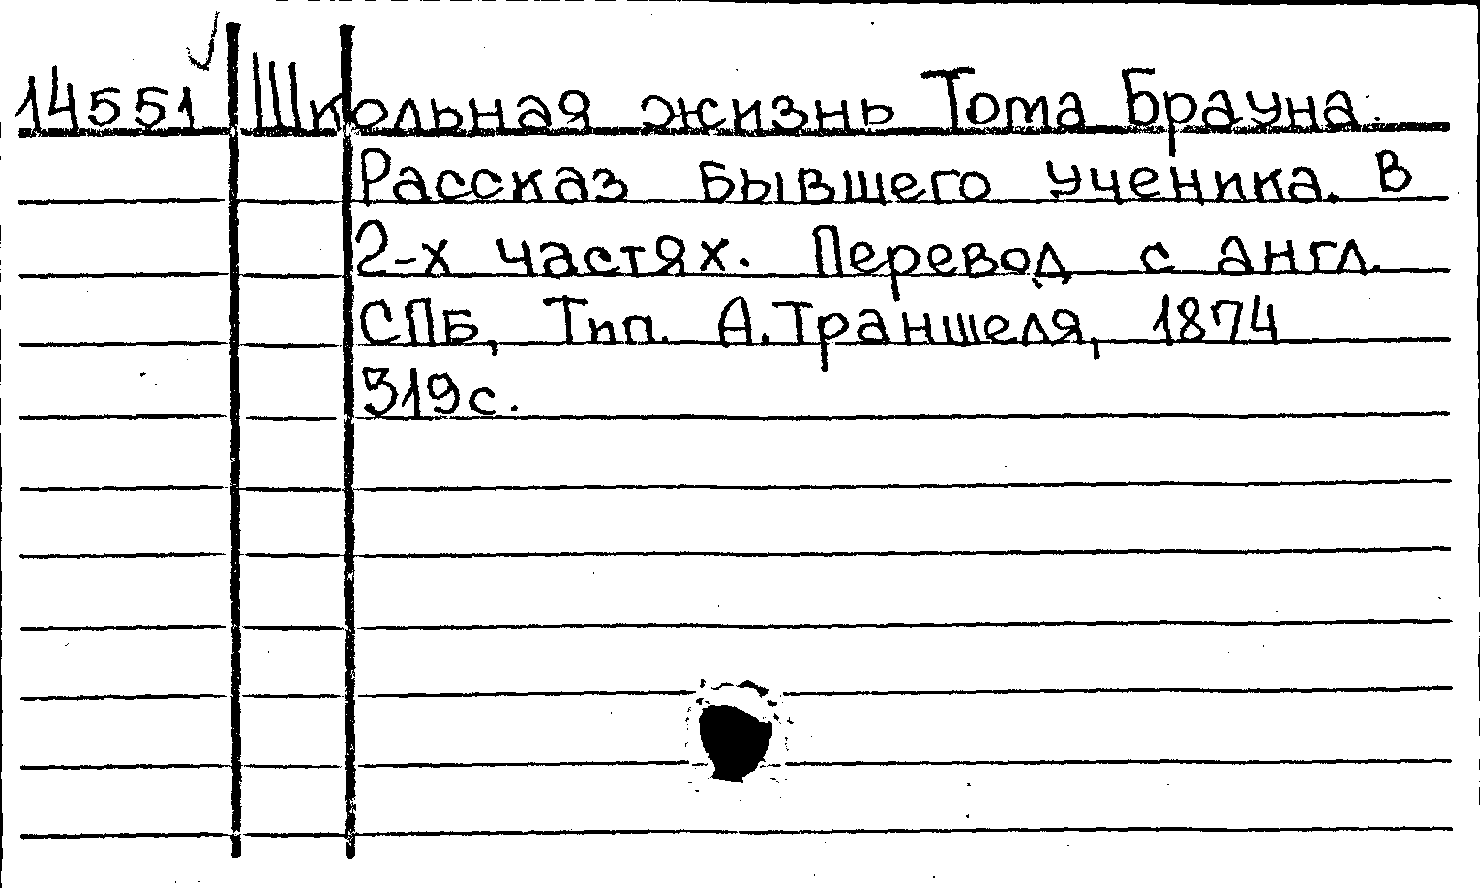 14551 Школьная жизнь Тома Брауна.
Рассказ бывшего ученика. В
2-х частях. Перевод с англ.
СПБ, Тип. А.Траншеля, 1874
319с.